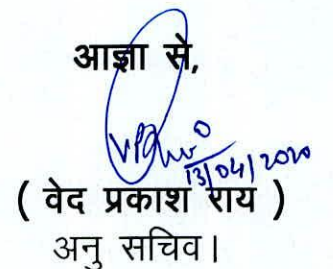 आज्ञा से,
13/04/2020
( वेद प्रकाश राय )
अनु सचिव।